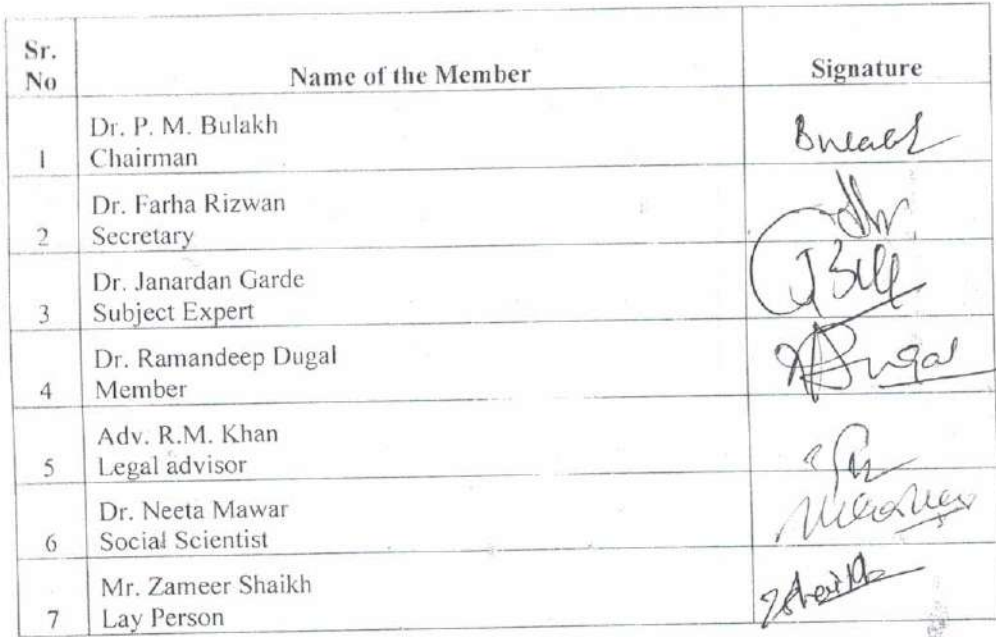 Sr.
No
Name of the Member
Signature
Dr. P. M. Bulakh
1 Chairman
Bulakh
Dr. Farha Rizwan
2 Secretary
Dr. Janardan Garde
3 Subject Expert
Dr. Ramandeep Dugal
4 Member
Dugal
Adv. R.M. Khan
5 Legal advisor
Dr. Neeta Mawar
6 Social Scientist
Mr. Zameer Shaikh
7 Lay Person